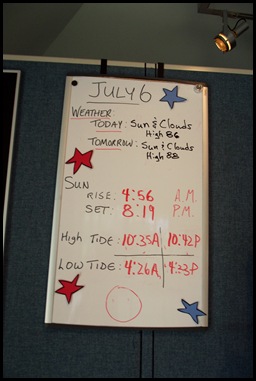 JULY 6
WEATHER
TODAY: Sun & Clouds
High 86
TOMORROW: Sun & Clouds
High 88
SUN
RISE: 4:56 A.M.
SET: 8:19 P.M.
HIGH TIDE: 10:35A 10:42P
LOW TIDE: 4:26A 4:33P